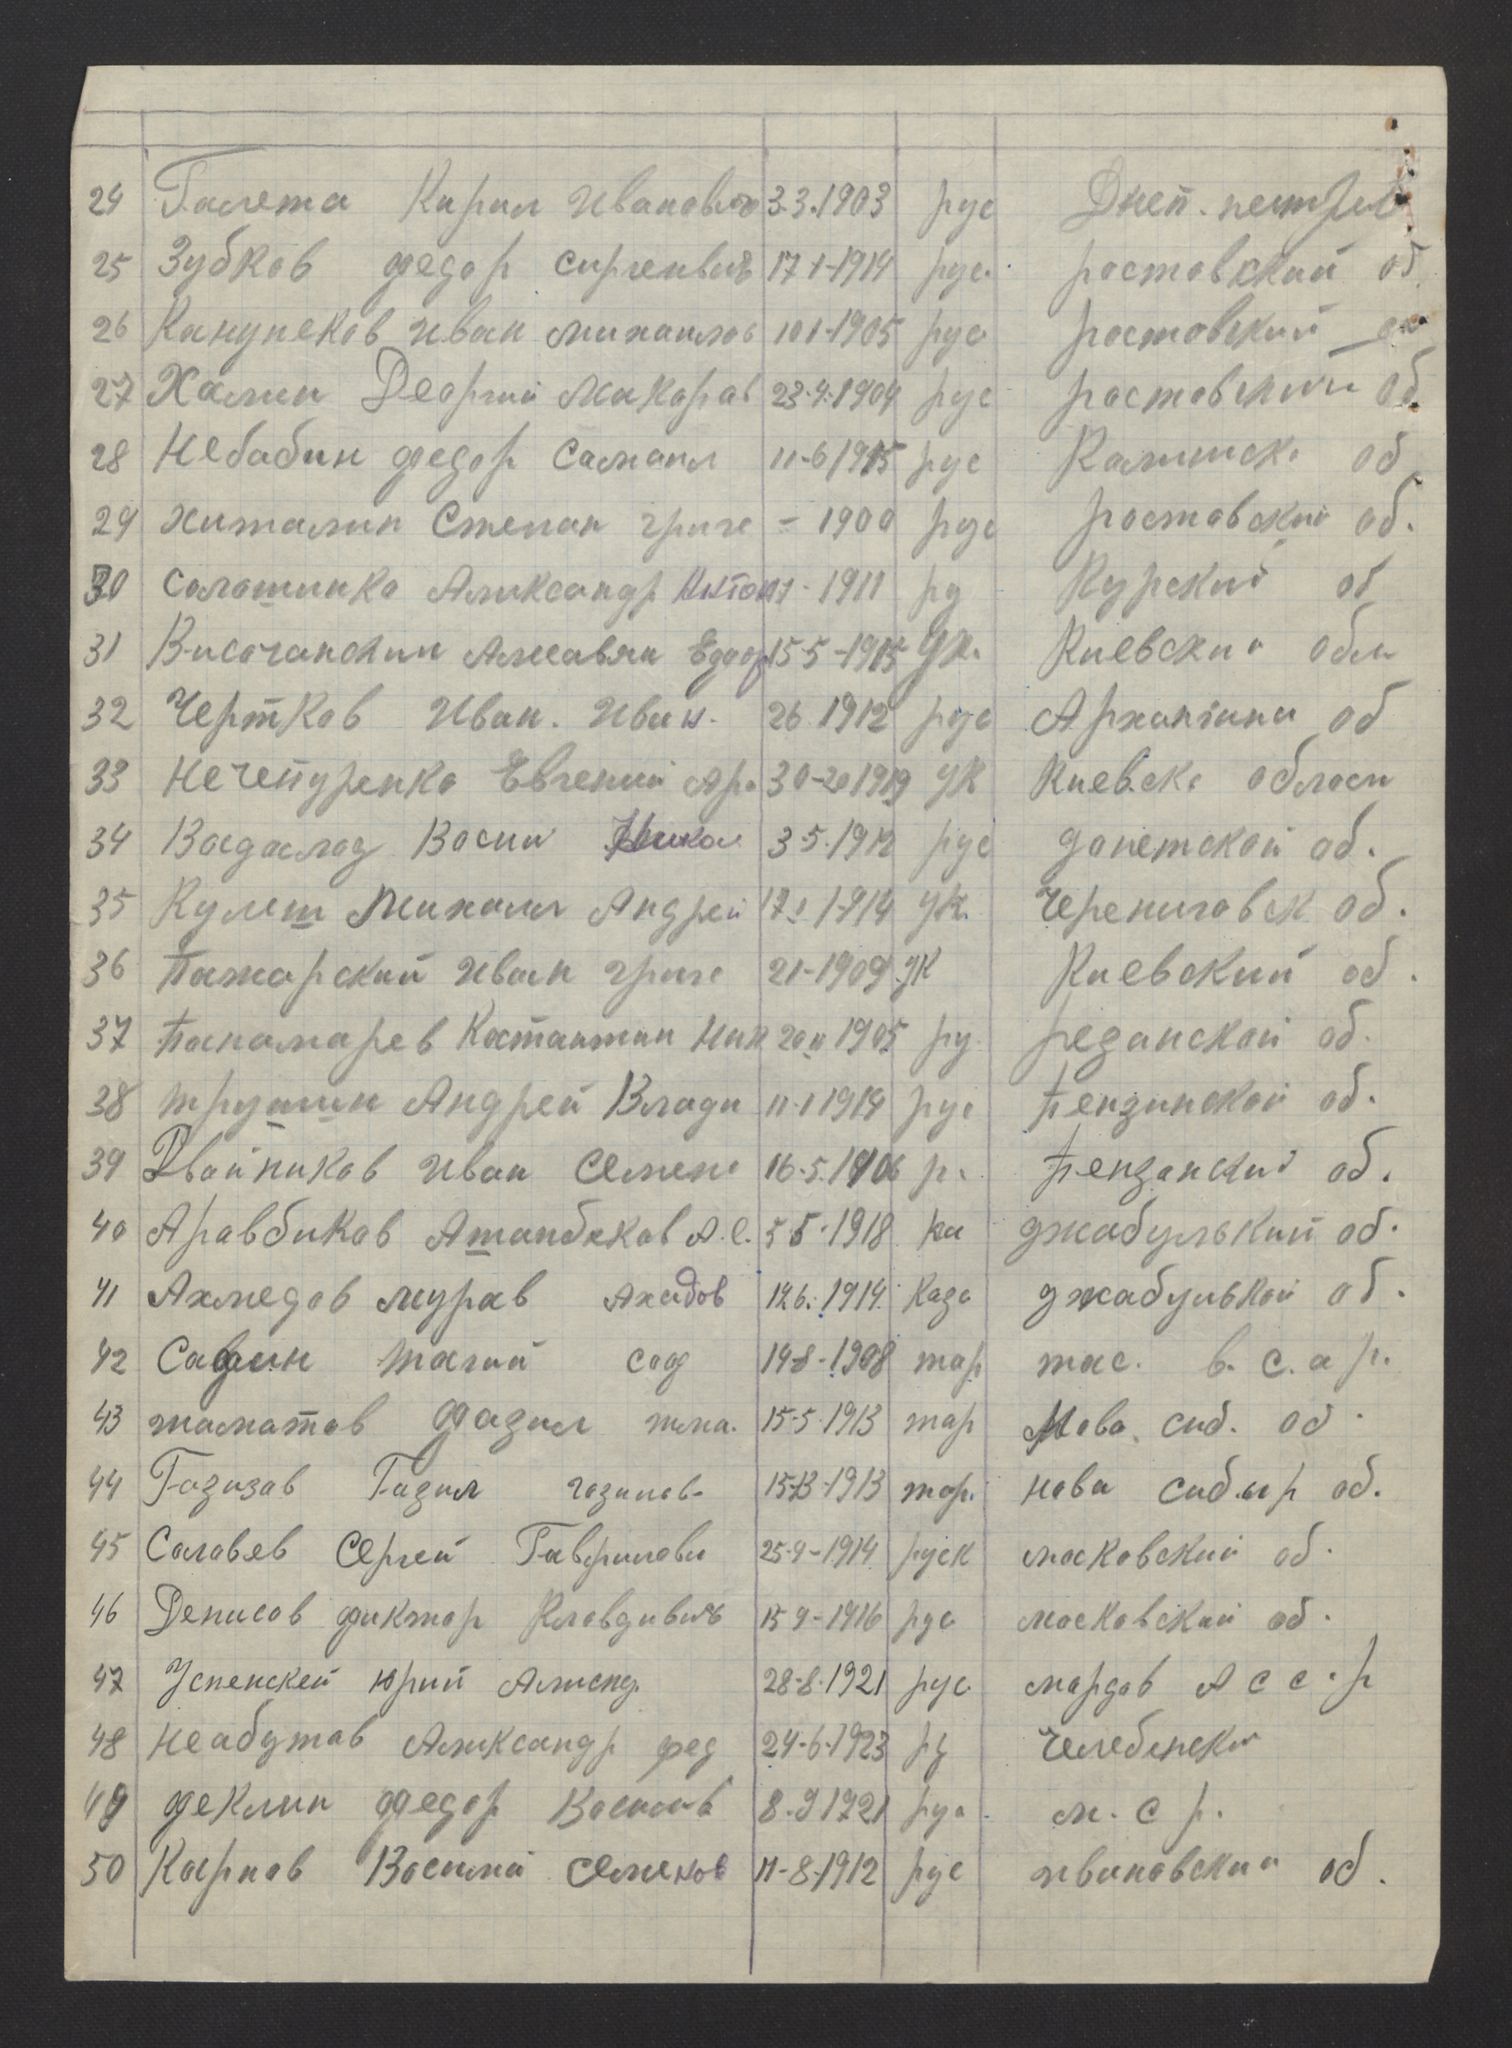 24 Галета Кирил Иванович 3.3.1903 рус Днеп. петров
25 Зубков федор сиргеивич 17 1-1914 рус. ростовский об.
26 Канунеков Иван михаилов 10 1-1905 рус ростовский
27 Халин Георгий Макоров 23.4.1904 рус ростовский об
28 Небабин федор Самаил 11-6 1915 рус об
29 хиталин Степан григе - 1900 рус ростовский об.
30 Солошинко Аликсандр Антон 1911 ру Курский об
31 Височански 15-5-1915 Ук. Киевский обл
32 Чертков Иван. Иван. 26 1912 рус Архангини об
33 Нечепуренко Евгений Ар. 30-20 1919 ук Киевске област
34 Васил Никол 3 5.1912 рус донетской об.
35 Кулеш Михаил Андрей 17.1 1914 ук. Черениговск об.
36 Пажарский Иван григе 21-1909 ук Киевский об.
37 Панамарев Костантин Ник 20 11 1905 ру. резанской об.
38 трушин Андрей Влади 11-1 1914 рус Пензинской об.
39 Двойников Иван Семене 16-5.1906 р. Пензанский об.
40 Аравбиков Атанбеков А.С. 5 5-1918 ка джабулький об.
41 Ахмедов мурав Ахадов 14.6.1914 каза джабулькой об.
42 Сафин тагий сад 14-8-1908 тар тас. в. с. а р.
43 таматов Фазил тма. 15-5.1913 тар Нова. сиб. об.
44 Газизав Газил газинов- 15-В-1913 тар. нова сибир об.
45 Салавьев Сергей Гаврилови 25-9-1914 руск масковский об.
46 Денисов фиктор Клавдивичь 15 9-1916 рус московский об.
47 Успенскей юрий Алиснд. 28-8.1921 рус мардов А с с. р
48 Неабутав Аликсандр фед 24-6-1923 ру Челебински
49 феклин Федор Васил 8-9 1921 рус м. с р.
50 Карпов Василий Семенов 11-8-1912 рус ивановский об.